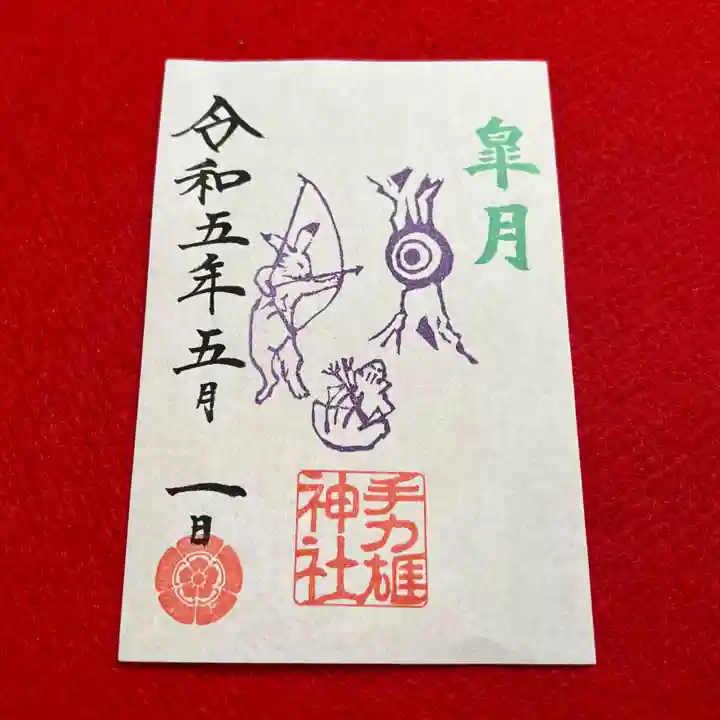 皐月
令和五年五月一日
手力雄
神社